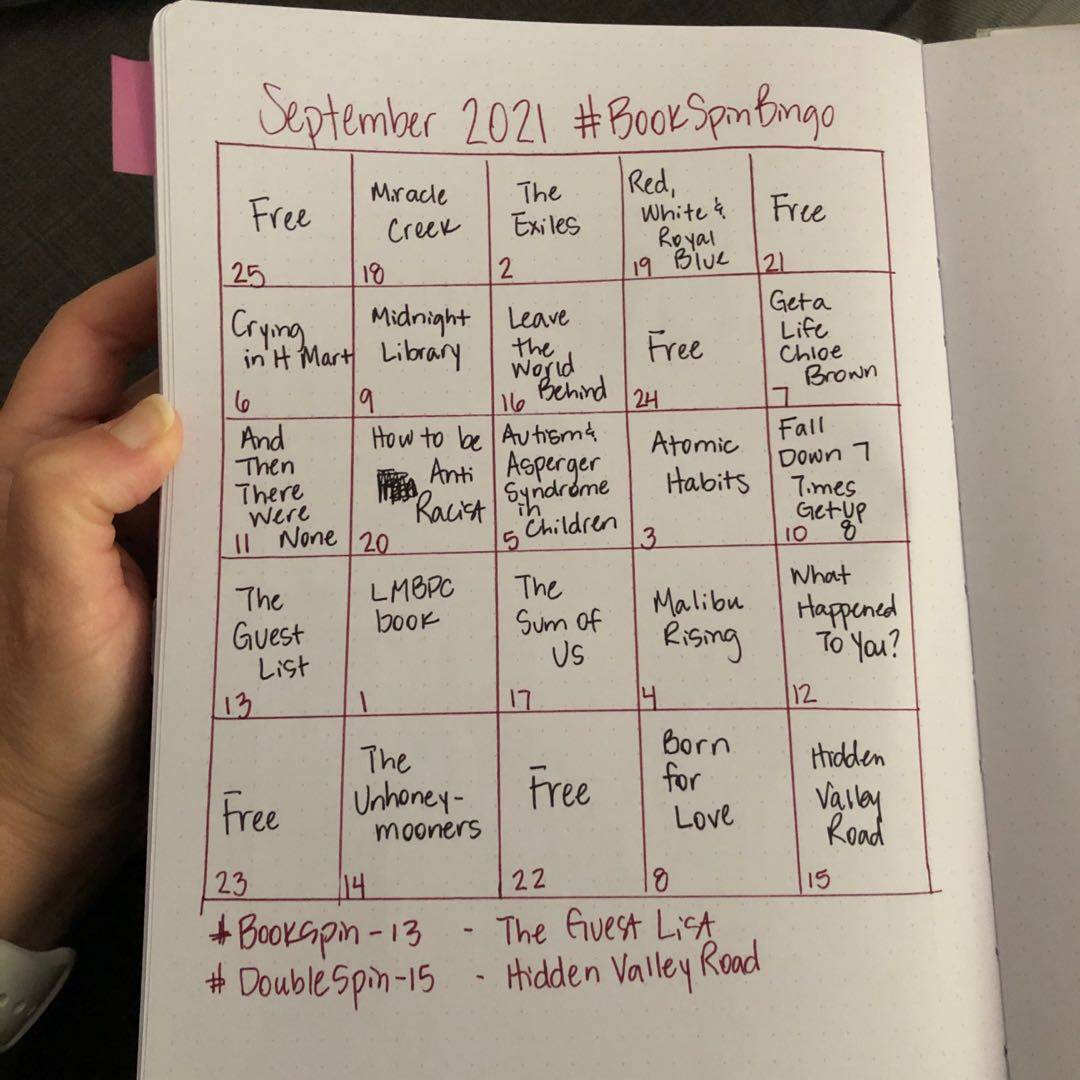 September 2021 #BookSpinBingo
Free
25
Miracle
Creek
18
The
Exiles
2
Red,
White &
Royal
Blue
19
Free
21
Crying
in H Mart
6
Midnight
Library
9
Leave
the
World
Behind
16
Free
24
Get a
Life
Chloe
Brown
7
And
Then
There
Were
None
11
How to be
Anti
Racist
20
Autism &
Asperger
Syndrome
in
Children
5
Atomic
Habits
3
Fall
Down 7
Times
Get Up
8
10
The
Guest
List
13
LMBPC
book
1
The
Sum of
Us
17
Malibu
Rising
4
What
Happened
To You?
12
Free
23
The
Unhoney-
mooners
14
Free
22
Born
for
Love
8
Hidden
Valley
Road
15
#BookSpin-13 - The Guest List
#DoubleSpin-15 - Hidden Valley Road